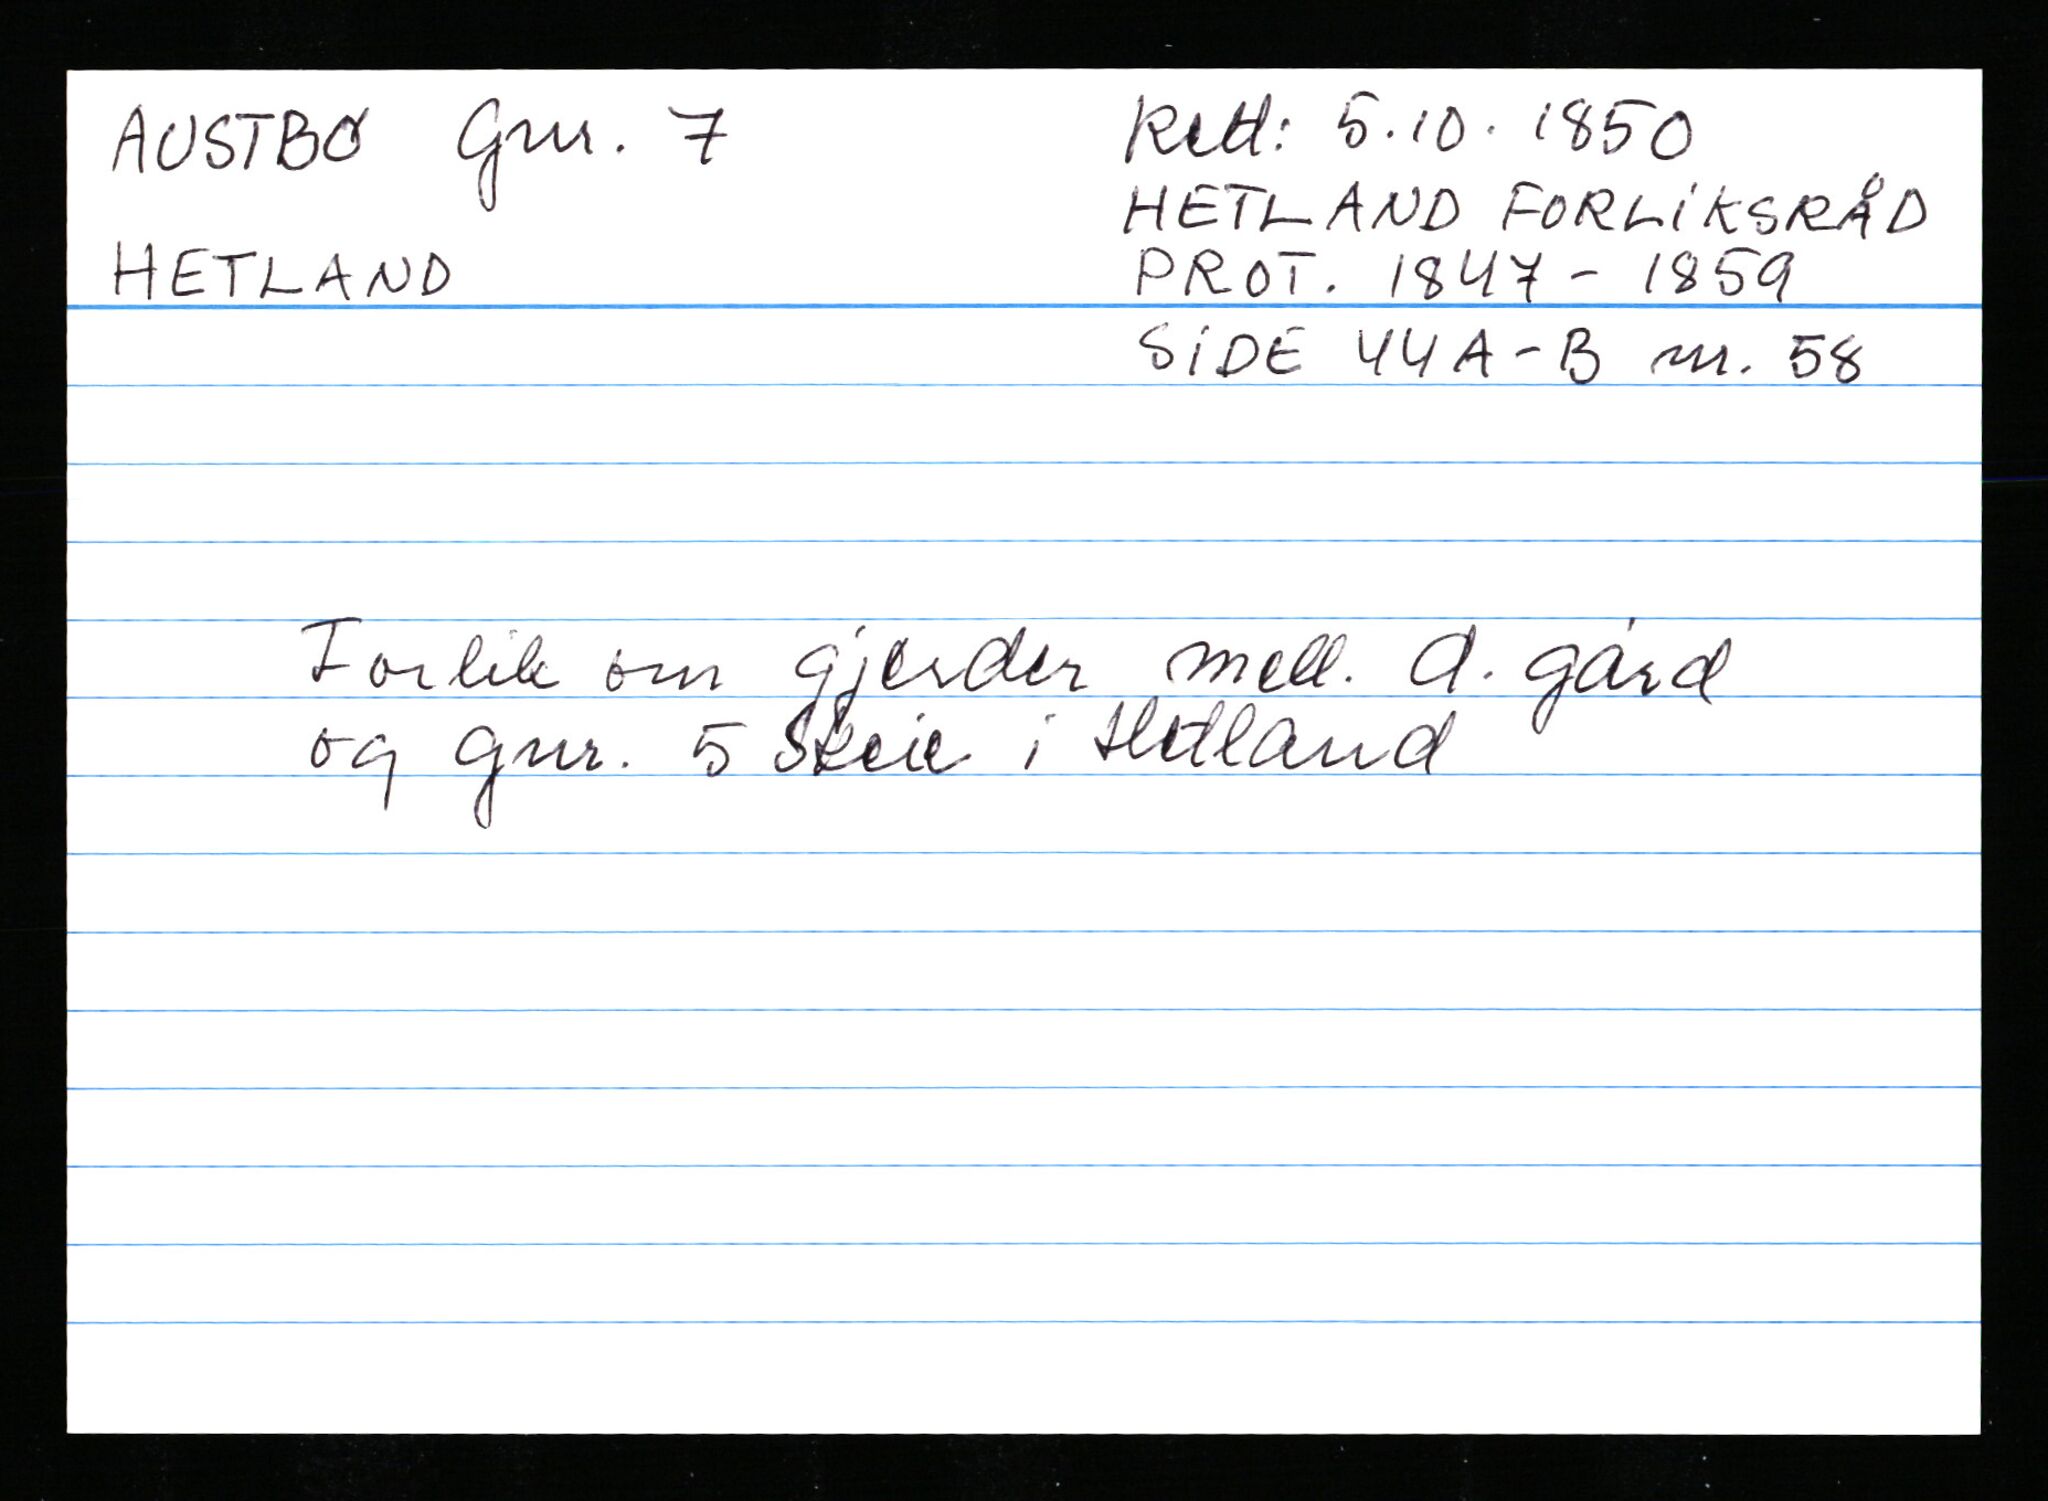 AUSTBØ Gnr. 7
HETLAND
Rett: 5.10.1850
HETLAND FORLIKSRÅD
PROT. 1847 - 1859
SIDE 44A-B nr. 58
Forlik om gjerder mell. d. gård
og gnr. 5 Skeie i Hetland